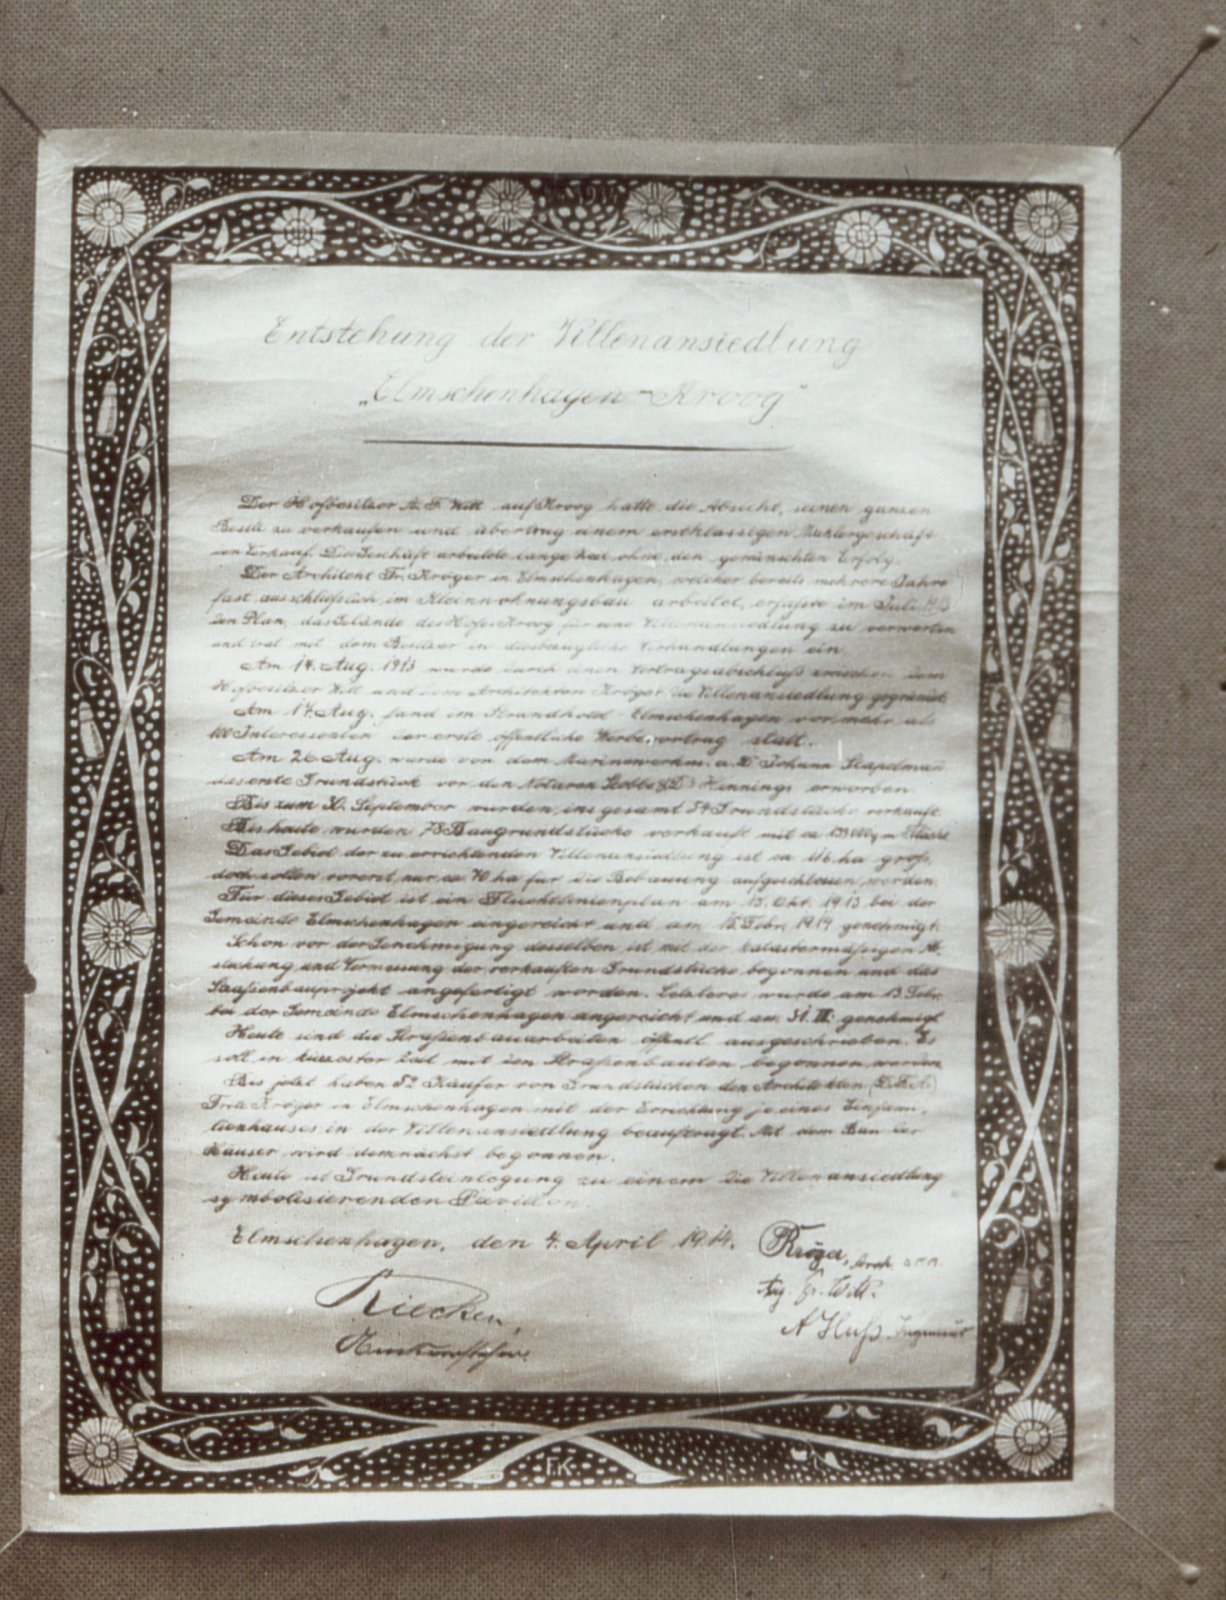 Entstehung der Villenansiedlung
„Elmschenhagen-Kroog"
Der Hofbesitzer A. F. Witt auf Kroog hatte die Absicht, seinen ganzen
Besitz zu verkaufen und übertrug einem erstklassigen Maklergeschäft
den Verkauf. Die Geschäft arbeitete lange Zeit ohne den gewünschten Erfolg.
Der Architekt Fr. Kröger in Elmschenhagen, welcher bereits mehrere Jahre
fast ausschließlich im Kleinwohnungsbau arbeitet, erfaßte im Juli 1913
den Plan, das Gelände des Hofes Kroog für eine Villenansiedlung zu verwerten
und trat mit dem Besitzer in diesbezügliche Verhandlungen ein.
Am 14. Aug. 1913 wurde durch einen Vertragsabschluß zwischen dem
Hofbesitzer Witt und dem Architekten Kröger die Villenansiedlung gegründet.
Am 17. Aug. fand im Elmschenhagen vor mehr als
100 Interessenten der erste öffentliche Werbevortrag statt.
Am 26. Aug. wurde von dem a. D. Johann
das erste Grundstück vor den Notaren & Dr. Hennings erworben.
Bis zum September wurden insgesamt 54 Grundstücke verkauft.
Bis heute wurden 78 Baugrundstücke verkauft mit ca.
Das Gebiet der zu errichtenden Villenansiedlung ist ca. ha groß,
doch sollen vorerst nur ca. 70 ha für die Bebauung aufgeschlossen werden.
Für dieses Gebiet ist ein Fluchtlinienplan am 15. Okt. 1913 bei der
Gemeinde Elmschenhagen eingereicht und am 15. Febr. 1914 genehmigt.
Schon vor der Genehmigung desselben ist mit der katastermäßigen Ab-
steckung und Vermessung der verkauften Grundstücke begonnen und das
Straßenbauprojekt angefertigt worden. Letzteres wurde am 13. Febr.
bei der Gemeinde Elmschenhagen eingereicht und am 31. III. genehmigt.
Heute sind die Straßenbauarbeiten öffentl. ausgeschrieben. Es
soll in kürzester Zeit mit den Straßenbauten begonnen werden.
Bis jetzt haben 52 Käufer von Grundstücken den Architekten
Fritz Kröger in Elmschenhagen mit der Errichtung je eines Einfami-
lienhauses in der Villenansiedlung beauftragt. Mit dem Bau der
Häuser wird demnächst begonnen.
Heute ist Grundsteinlegung zu einem die Villenansiedlung
symbolisierenden Pavillon.
Elmschenhagen, den 4. April 1914.
Kröger, Arch.
Aug. Fr. Witt.
Riecken,
A Huß. Ingenieur
F.K